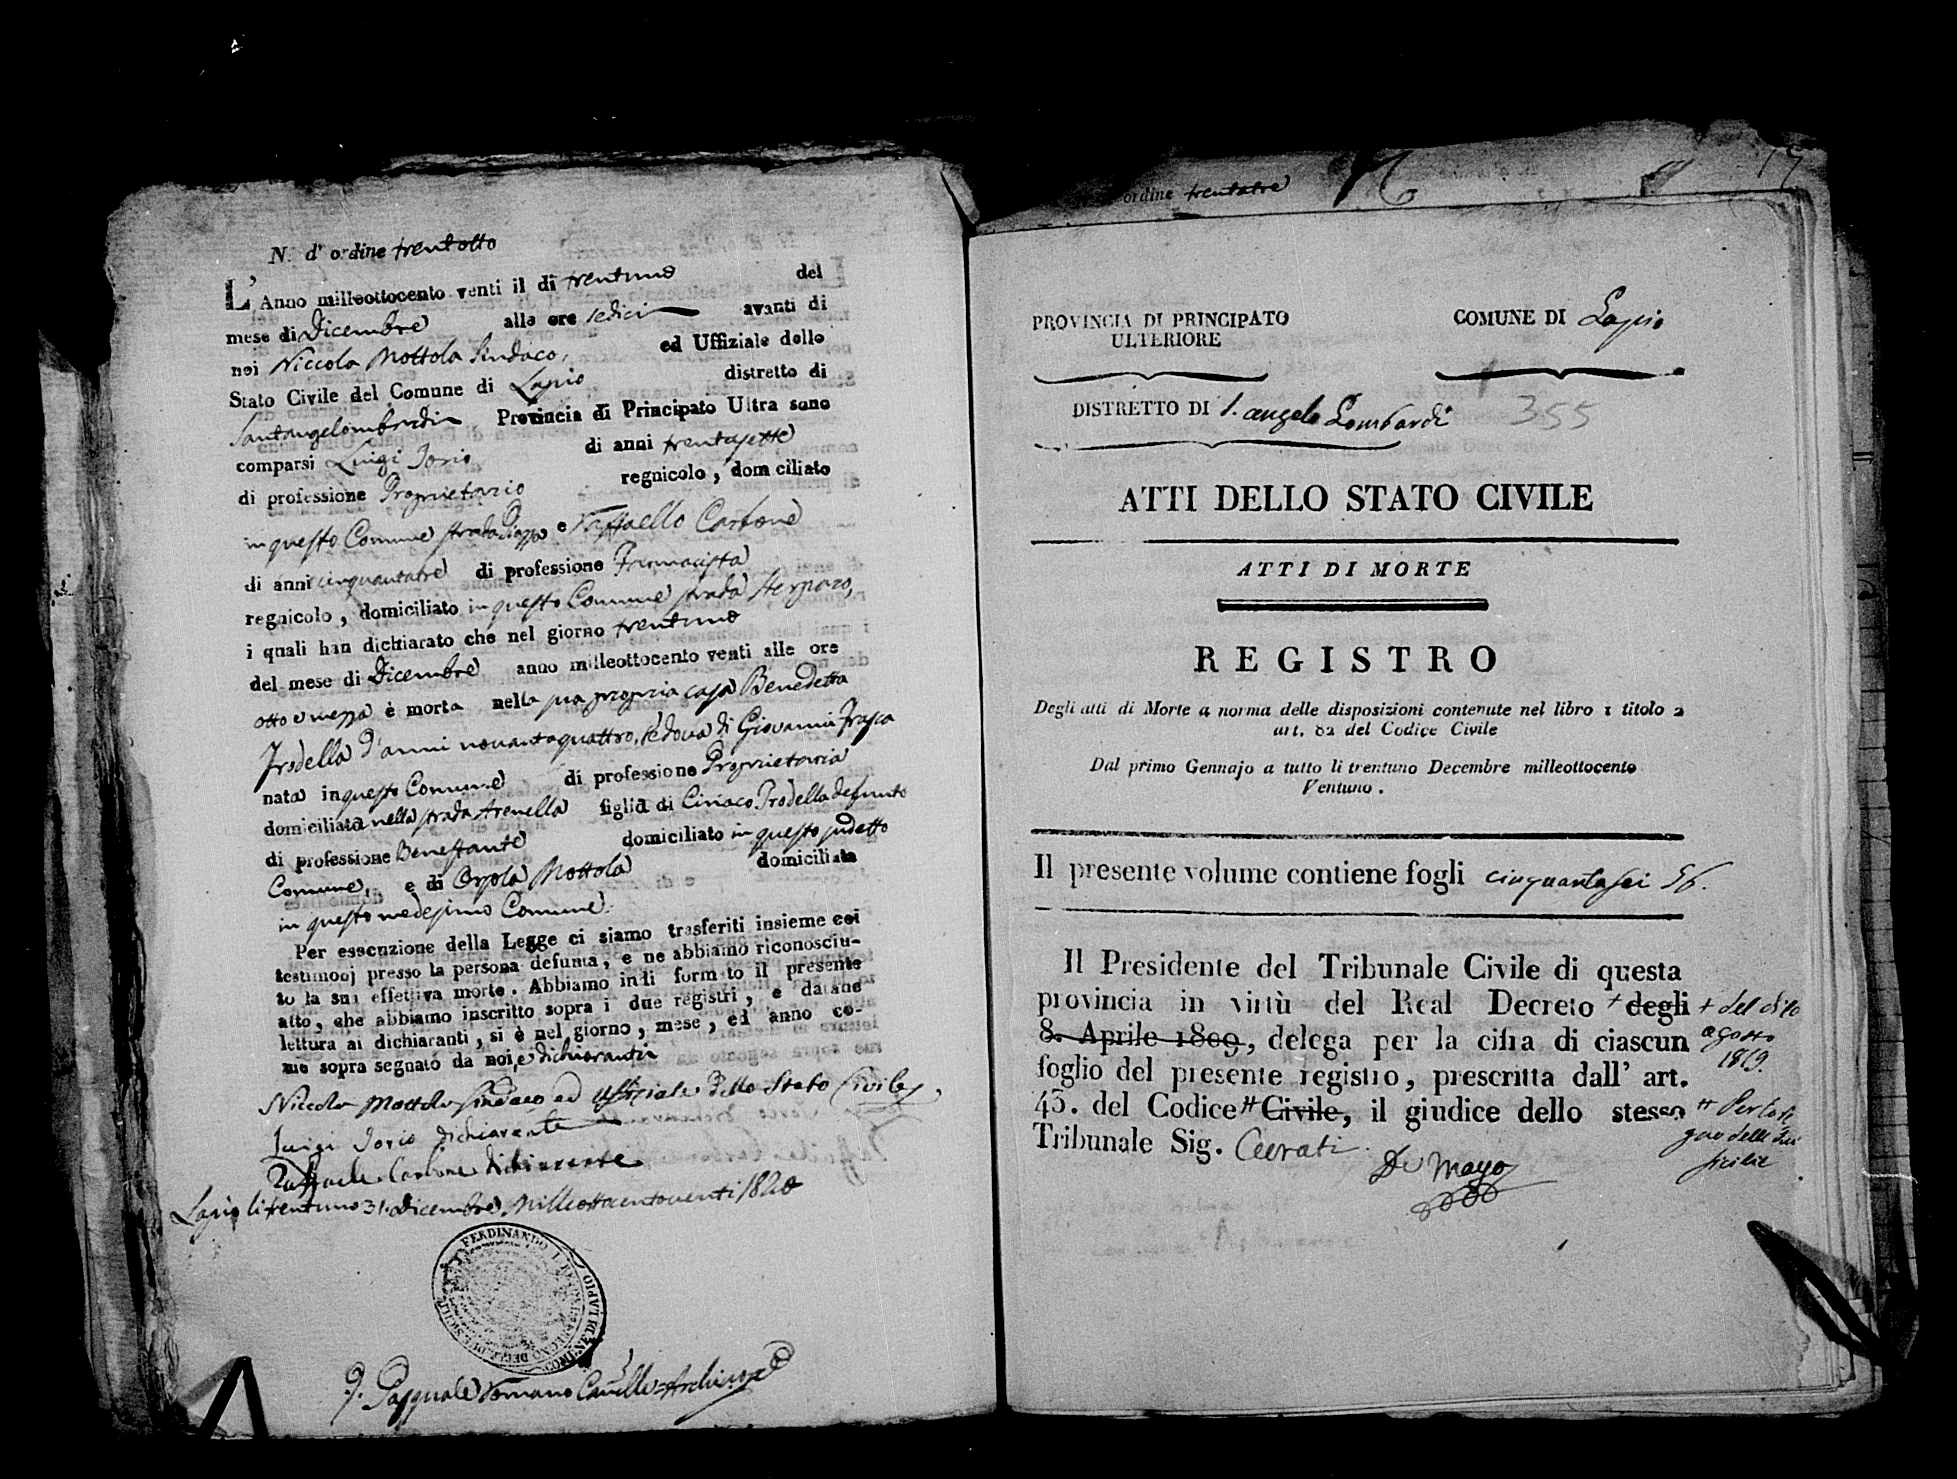 N. d' ordine trentotto
L' Anno milleottocento venti il dì trentuno del
mese di Dicembre alle ore sedici avanti di
noi Niccola Mottola Sindaco, ed Uffiziale dello
Stato Civile del Comune di Lapio distretto di
Santangelombardi Provincia di Principato Ultra sono
comparsi Luigi Iorio di anni trentasette
di professione Proprietario regnicolo, domiciliato
in questo Comune strada Piazza, e Raffaello Carbone
di anni cinquantatre di professione Farmacista
regnicolo, domiciliato in questo Comune strada
i quali han dichiarato che nel giorno trentuno
del mese di Dicembre anno milleottocento venti alle ore
otto e mezza è morta nella sua propria casa Benedetta
Trodella d'anni novantaquattro, vedova di Giovanni
nata in questo Comune di professione Proprietaria
domiciliata nella strada Arenella figlia di Ciriaco Trodella defunto
di professione Benestante domiciliato in questo sudetto
Comune, e di Orsola Mottola domiciliata
in questo medesimo Comune.
Per esecuzione della Legge ci siamo trasferiti insieme coi
testimonj presso la persona defunta, e ne abbiamo riconosciu-
to la sua effettiva morte. Abbiamo indi formato il presente
atto, che abbiamo inscritto sopra i due registri, e datane
lettura ai dichiaranti, si è nel giorno, mese, ed anno co-
me sopra segnato da noi, e dichiaranti
Niccola Mottola Sindaco ed Uffiziale dello Stato Civile
Luigi Iorio dichiarante
Raffaele Carbone dichiarante
Lapio li trentuno 31 dicembre, Milleottocentoventi 1820
FERDINANDO I. RE DEL REGNO DELLE DUE SICILIE
COMUNE DI LAPIO
Pasquale Romano Cancelliere Archivario
ordine trentatre
17
PROVINCIA DI PRINCIPATO
ULTERIORE
COMUNE DI Lapio
DISTRETTO DI S. angelo Lombardi
355
ATTI DELLO STATO CIVILE
ATTI DI MORTE
REGISTRO
Degli atti di Morte a norma delle disposizioni contenute nel libro 1 titolo 2
art. 82 del Codice Civile
Dal primo Gennajo a tutto li trentuno Decembre milleottocento
Ventuno.
Il presente volume contiene fogli cinquantasei 56.
Il Presidente del Tribunale Civile di questa
provincia in virtù del Real Decreto + degli
8. Aprile 1809, delega per la cifra di ciascun
foglio del presente registro, prescritta dall' art.
43. del Codice # Civile, il giudice dello stesso
Tribunale Sig. Cerati.
De Mayo
+ del dì 10
agosto
1819.
# Per lo re
gno delle due
Sicilie